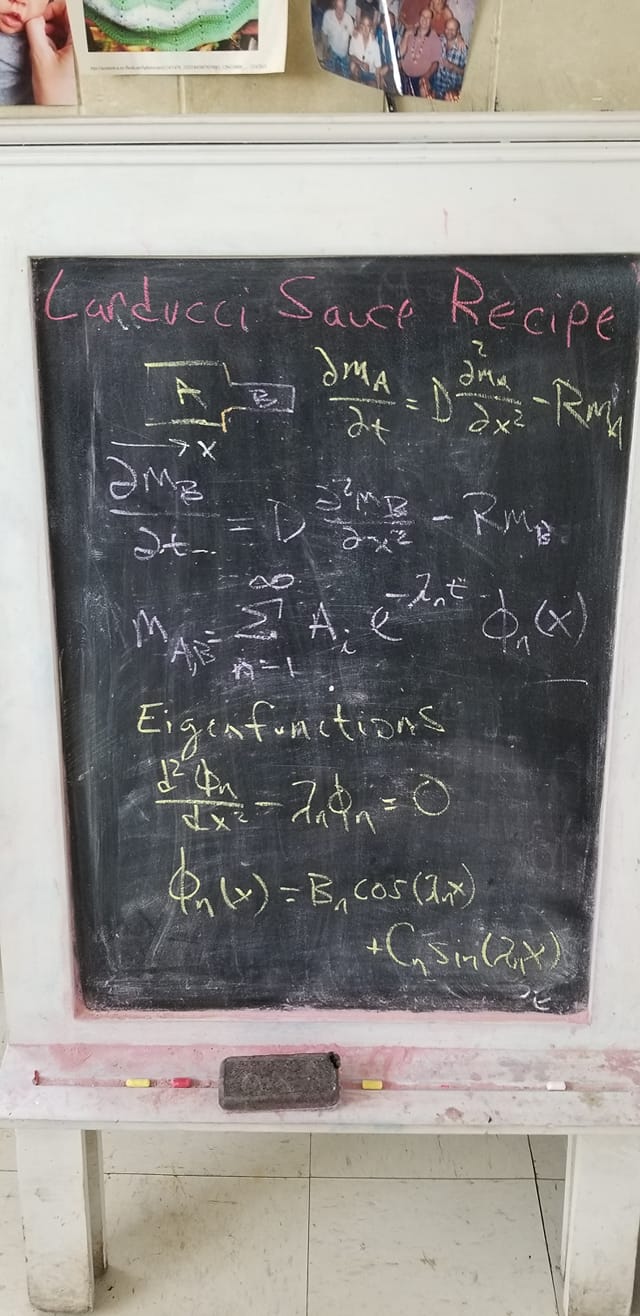 Carducci Sauce Recipe
A B ∂m_A/∂t = D ∂²m_A/∂x² - Rm_A
→ x
∂m_B/∂t = D ∂²m_B/∂x² - Rm_B
m_A,B = Σ_{n=1}^∞ A_i e^{-λ_n t} ϕ_n(x)
Eigenfunctions
d²ϕ_n/dx² - λ_nϕ_n = 0
ϕ_n(x) = B_n cos(λ_n x)
+ C_n sin(λ_n x)